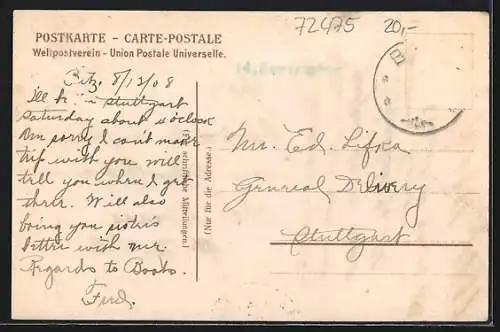 72475 20,-
POSTKARTE – CARTE-POSTALE
Weltpostverein - Union Postale Universelle.
Bitz, 8/12/08
Ill be in Stuttgart
Saturday about 5 o'clock
Am sorry I cant make
trip with you will
tell you when I get
there. Will also
bring you sisters
letter with me.
Regards to Boobs.
Ferd.
(Für schriftliche Mitteilungen.)
(Nur für die Adresse.)
Mr. Ed. Lifka
General Delivery
Stuttgart